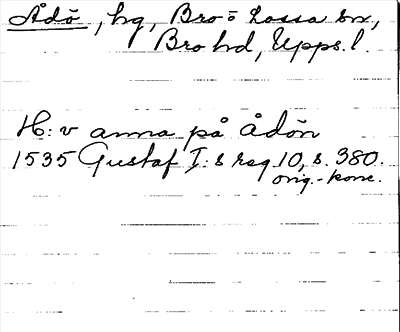 Ådö, hg, Bro o Lossa sn,
Bro hd, Upps. l.
H: v anna på ådön
1535 Gustaf I:s reg 10, s. 380.
orig.-konc.